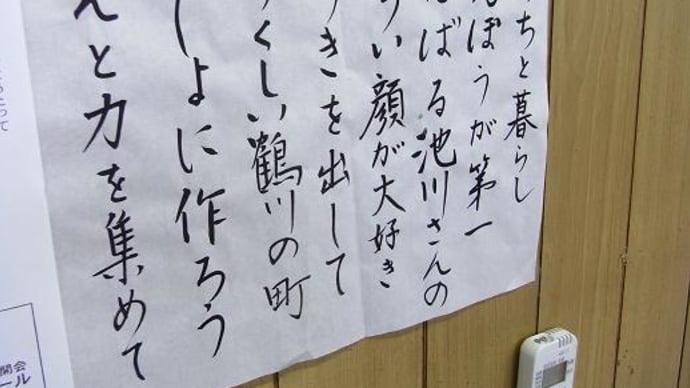 ちと暮らし
ぽうが第一
ばる池川さんの
い顔が大好き
きを出して
くしい鶴川の町
しょに作ろう
んと力を集めて
開会
ール